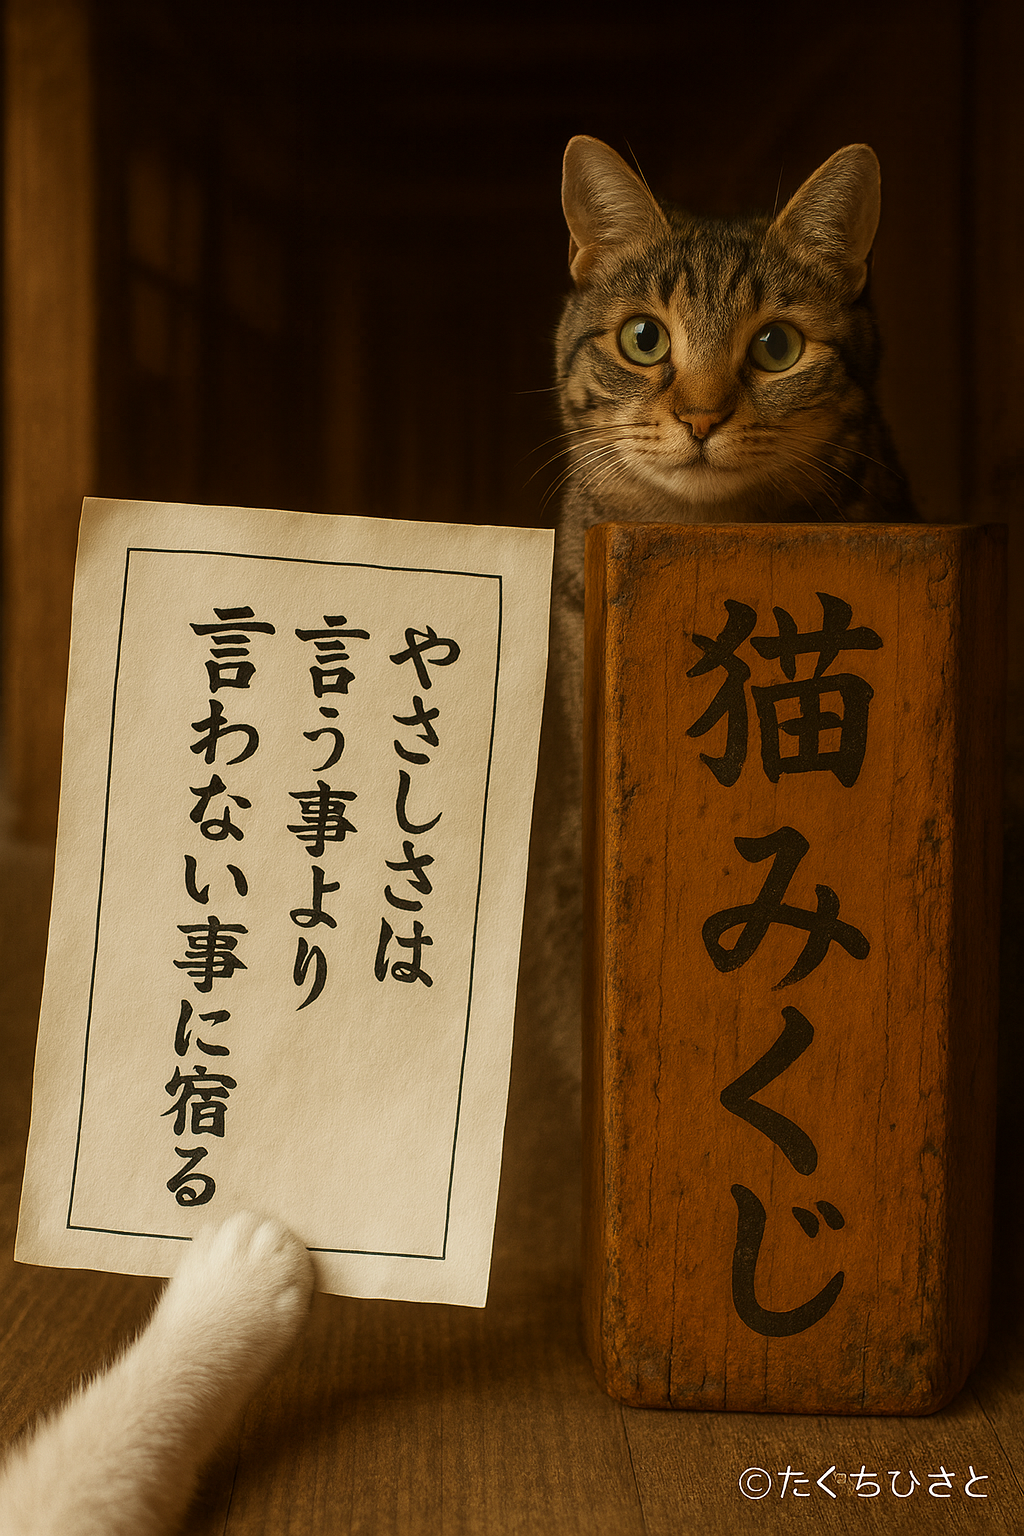 やさしさは
言う事より
言わない事に宿る
猫みくじ
©たくちひさと